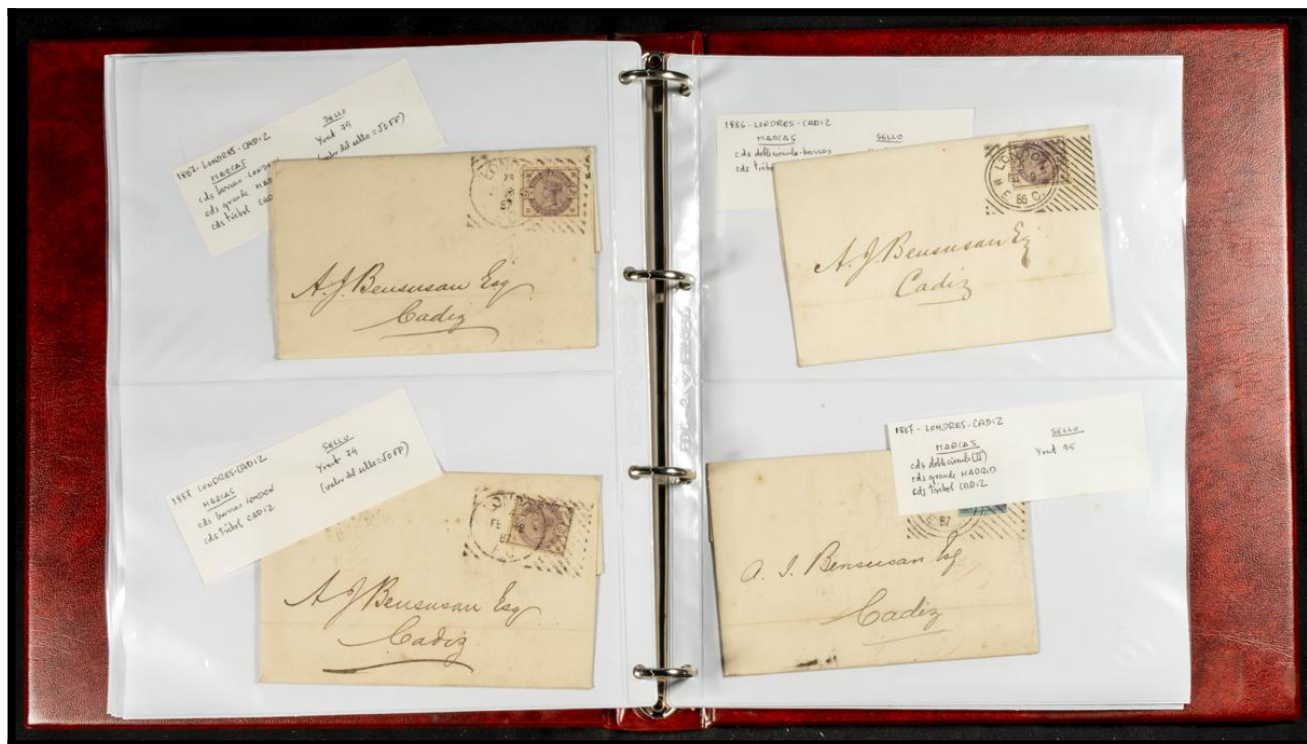 1887-LONDRES-CADIZ
MARCAS
cds barras LONDON
cds grande MAD
cds trébol CAD
SELLO
Yvert 79
(valor del sello=50FF)
LON
A.J. Bensusan Esq
Cadiz
1886-LONDRES-CADIZ
MARCAS
SELLO
cds doble círculo-barras
cds trébol
LONDON
E. C.
86
A.J. Bensusan Esq
Cadiz
1887 LONDRES-CADIZ
MARCAS
cds barras LONDON
cds trébol CADIZ
SELLO
Yvert 79
(valor del sello=50FF)
FE
87
A J Bensusan Esq
Cadiz
1887-LONDRES-CADIZ
MARCAS
cds doble círculo (II)
cds grande MADRID
cds trébol CADIZ
SELLO
Yvert 95
87
A. J. Bensusan Esq
Cadiz